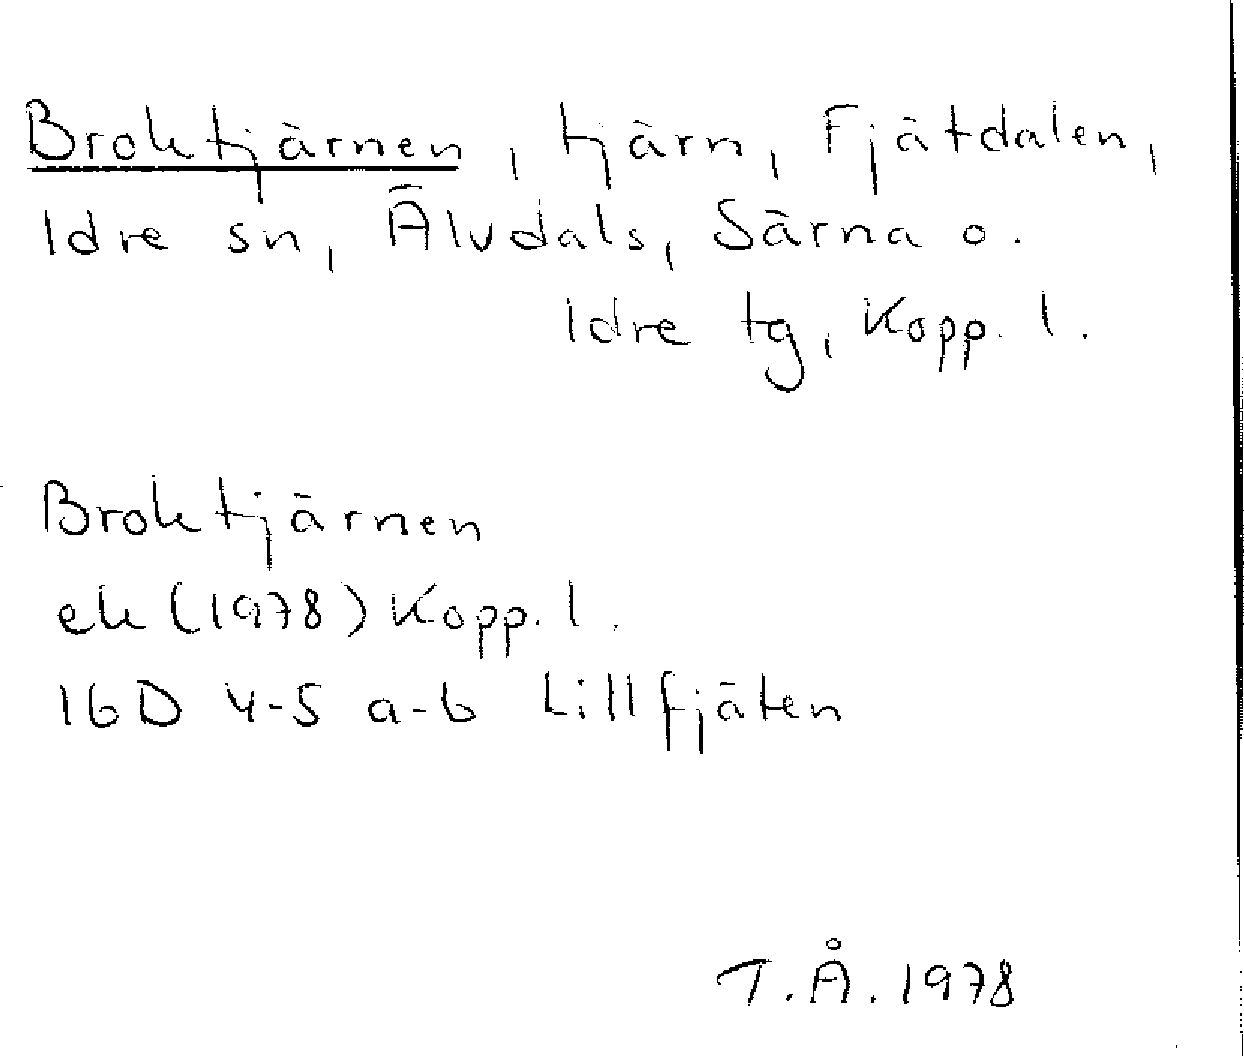 Broktjärnen, tjärn, Fjätdalen,
Idre sn, Älvdals, Särna o.
Idre tg, Kopp. l.
Broktjärnen
ek (1978) Kopp. l.
16D 4-5 a-b Lillfjäten
T.Å. 1978